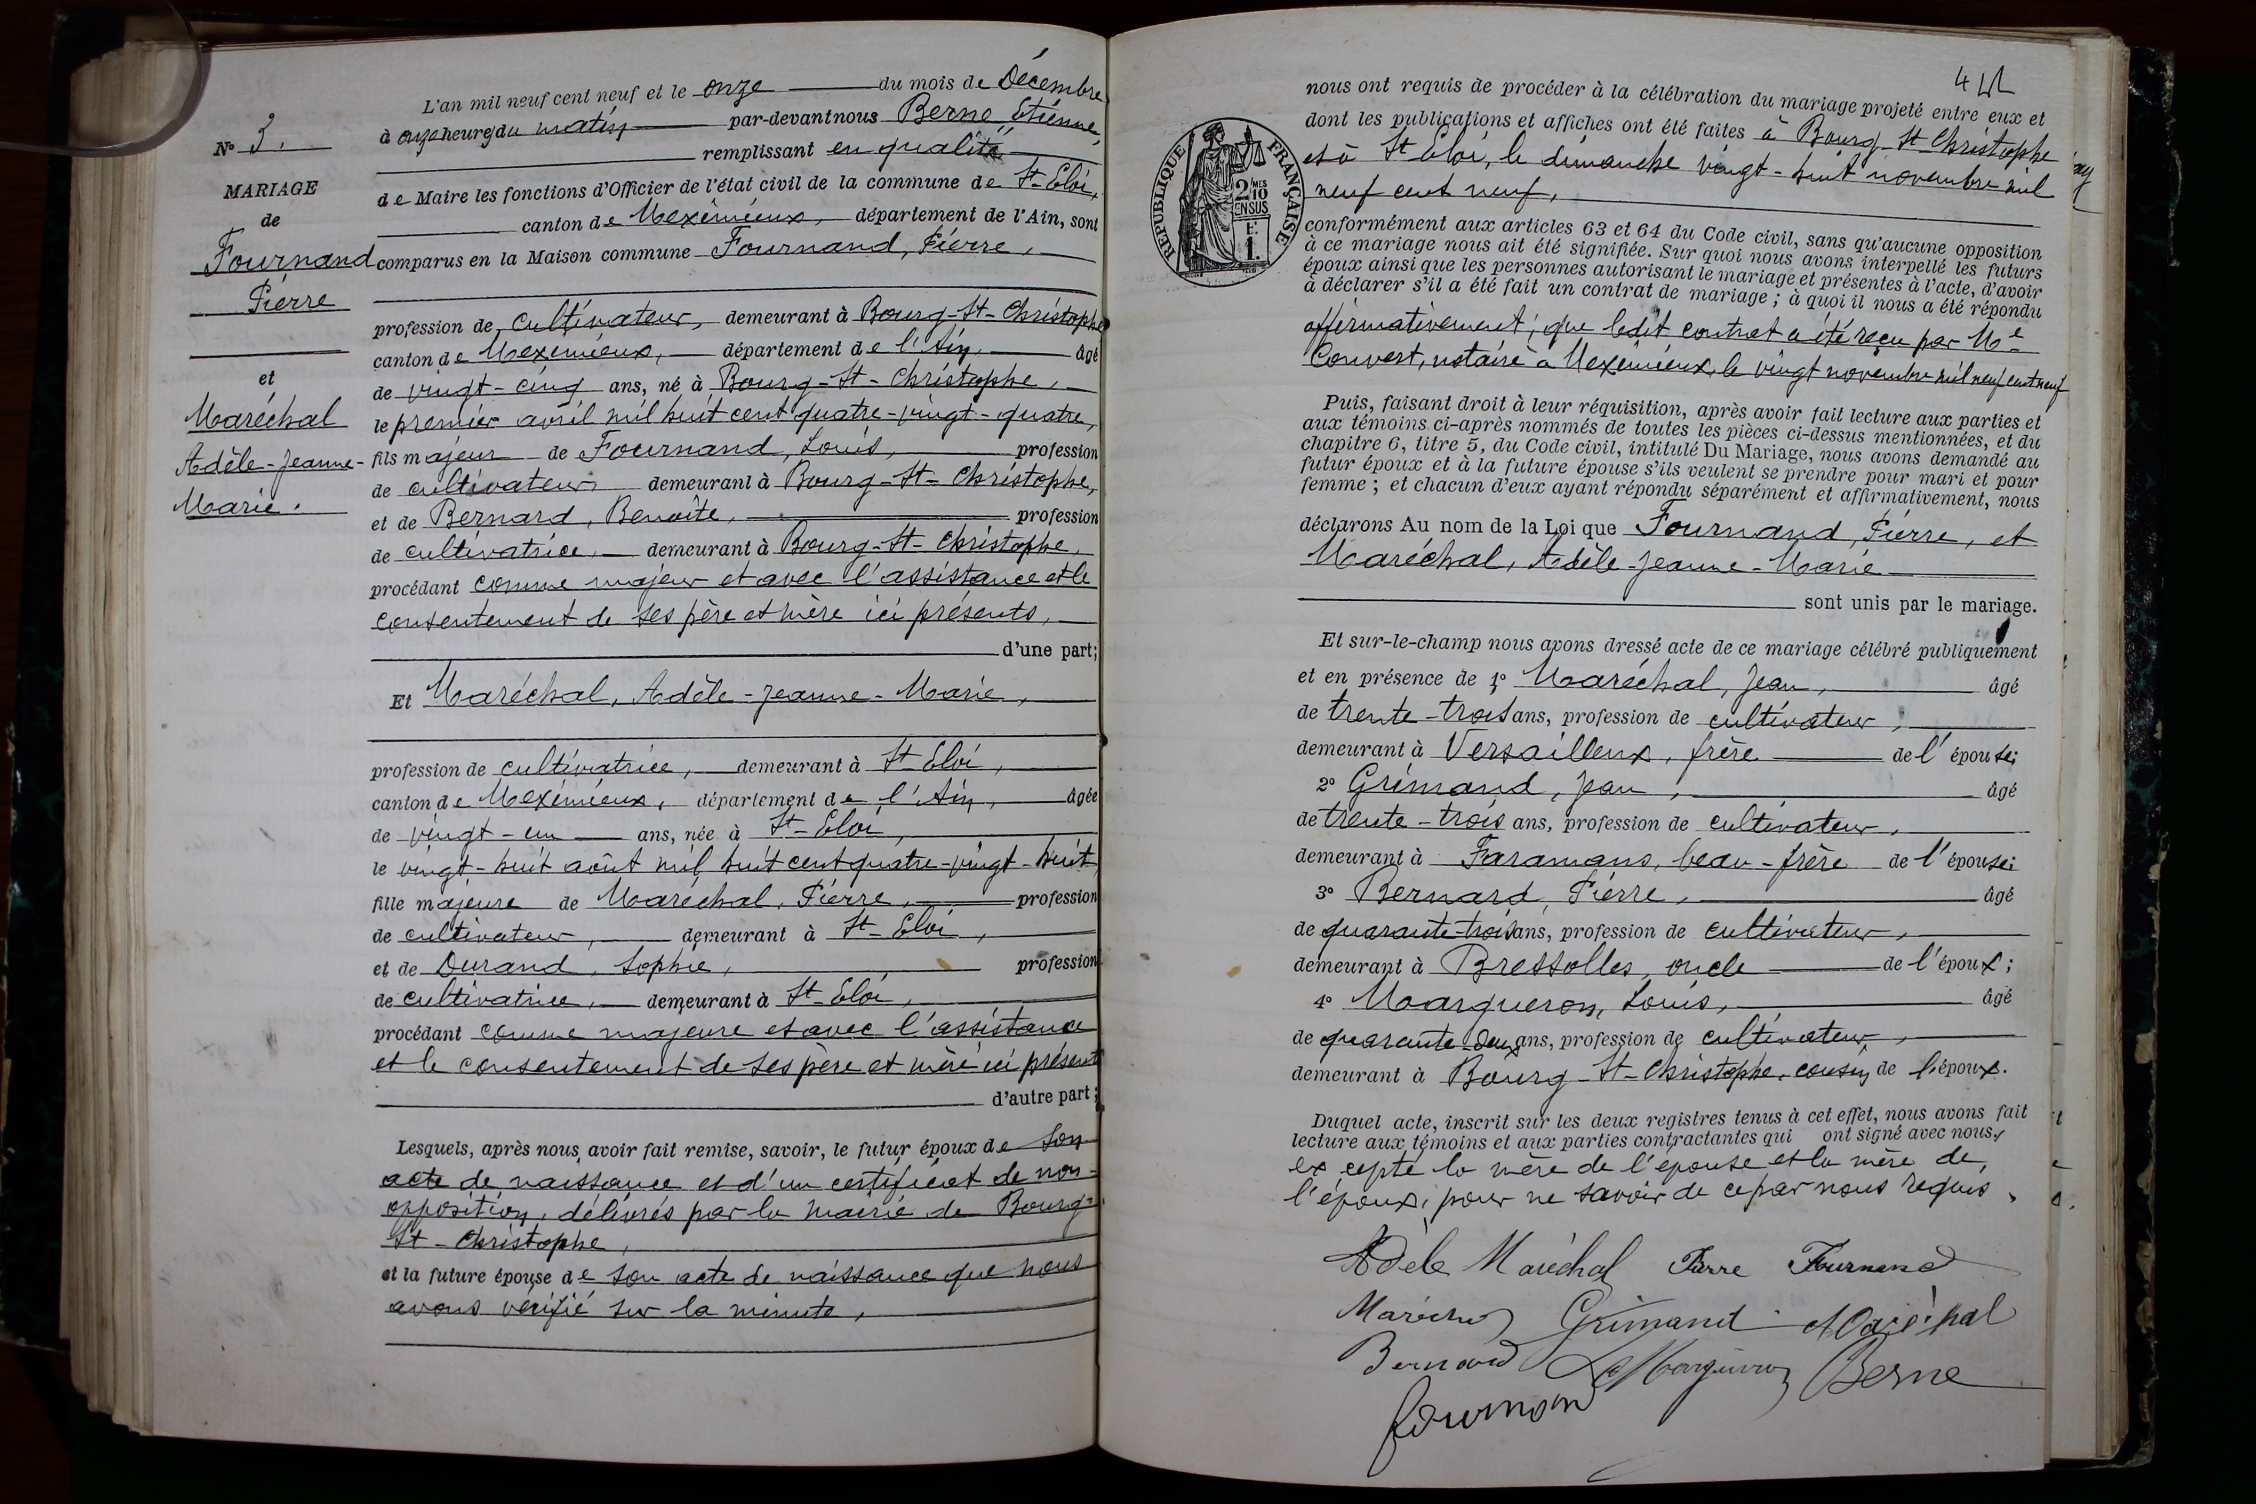 N° 3.
MARIAGE
de
Fournand
Pierre
et
Maréchal
Adèle-Jeanne-
Marie.
L'an mil neuf cent neuf et le onze du mois de Décembre
à onze heures du matin par-devant nous Berne Etienne,
remplissant en qualité
de Maire les fonctions d'Officier de l'état civil de la commune de St-Eloi,
canton de Meximieux, département de l'Ain, sont
comparus en la Maison commune Fournand, Pierre,
profession de cultivateur, demeurant à Bourg-St-Christophe
canton de Meximieux, département de l'Ain, âgé
de vingt-cinq ans, né à Bourg-St-Christophe,
le premier avril mil huit cent quatre-vingt-quatre,
fils majeur de Fournand, Louis, profession
de cultivateur demeurant à Bourg-St-Christophe,
et de Bernard, Benoîte, profession
de cultivatrice, demeurant à Bourg-St-Christophe,
procédant comme majeur et avec l'assistance et le
consentement de ses père et mère ici présents,
d'une part;
Et Maréchal, Adèle-Jeanne-Marie,
profession de cultivatrice, demeurant à St Eloi,
canton de Meximieux, département de l'Ain, âgée
de vingt-un ans, née à St-Eloi,
le vingt-huit août mil huit cent quatre-vingt-huit,
fille majeure de Maréchal, Pierre, profession
de cultivateur, demeurant à St-Eloi,
et de Durand, Sophie, profession
de cultivatrice, demeurant à St-Eloi,
procédant comme majeure et avec l'assistance
et le consentement de ses père et mère ici présents
d'autre part;
Lesquels, après nous avoir fait remise, savoir, le futur époux de son
acte de naissance et d'un certificat de non-
opposition, délivrés par la mairie de Bourg-
St-Christophe,
et la future épouse de son acte de naissance que nous
avons vérifié sur la minute,
RÉPUBLIQUE FRANÇAISE
2 MES
10
EN SUS
1.
nous ont requis de procéder à la célébration du mariage projeté entre eux et
dont les publications et affiches ont été faites à Bourg-St-Christophe
et à St Eloi, le dimanche vingt-huit novembre mil
neuf cent neuf,
conformément aux articles 63 et 64 du Code civil, sans qu'aucune opposition
à ce mariage nous ait été signifiée. Sur quoi nous avons interpellé les futurs
époux ainsi que les personnes autorisant le mariage et présentes à l'acte, d'avoir
à déclarer s'il a été fait un contrat de mariage; à quoi il nous a été répondu
affirmativement; que ledit contrat a été reçu par Me
Convert, notaire à Meximieux, le vingt novembre mil neuf cent neuf
Puis, faisant droit à leur réquisition, après avoir fait lecture aux parties et
aux témoins ci-après nommés de toutes les pièces ci-dessus mentionnées, et du
chapitre 6, titre 5, du Code civil, intitulé Du Mariage, nous avons demandé au
futur époux et à la future épouse s'ils veulent se prendre pour mari et pour
femme; et chacun d'eux ayant répondu séparément et affirmativement, nous
déclarons Au nom de la Loi que Fournand, Pierre, et
Maréchal, Adèle-Jeanne-Marie
sont unis par le mariage.
Et sur-le-champ nous avons dressé acte de ce mariage célébré publiquement
et en présence de 1° Maréchal, Jean, âgé
de trente-trois ans, profession de cultivateur,
demeurant à Versailleux, frère de l'épouse;
2° Grimand, Jean, âgé
de trente-trois ans, profession de cultivateur,
demeurant à Faramans, beau-frère de l'épouse;
3° Bernard, Pierre, âgé
de quarante-trois ans, profession de cultivateur,
demeurant à Bressolles, oncle de l'époux;
4° Margueron, Louis, âgé
de quarante-deux ans, profession de cultivateur,
demeurant à Bourg-St-Christophe, cousin de l'époux.
Duquel acte, inscrit sur les deux registres tenus à cet effet, nous avons fait
lecture aux témoins et aux parties contractantes qui ont signé avec nous,
excepté la mère de l'épouse et la mère de
l'époux, pour ne savoir de ce par nous requis.
Adèle Maréchal Pierre Fournand
Maréchal Grimand Maréchal
Bernard L Margueron Berne
fournand